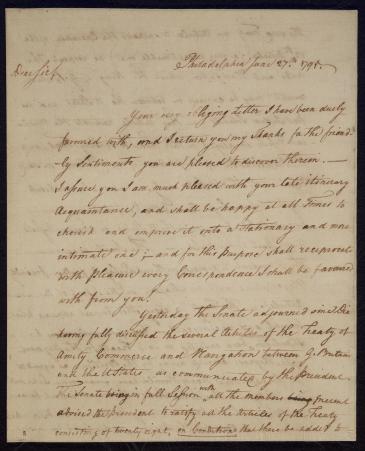 Philadelphia June 27th 1795.
Dear Sir,
Your very obliging Letter I have been duly
favored with, and I return you my Thanks for the friend-
ly Sentiments you are pleased to discover therein. —
I assure you I am much pleased with your late itinerary
Acquaintance, and shall be happy at all Times to
cherish and improve it into a Stationary and more
intimate one; — and for this Purpose shall reciprocate
with Pleasure every Correspondence I shall be favored
with from you.
Yesterday the Senate adjourned
having fully discussed the several Articles of the Treaty of
Amity Commerce and Navigation between G. Britain
and the U States as communicated by the President
The Senate being in full Session with all the members being present
advised the President to ratify all the Articles of the Treaty
consisting of twenty eight, on Condition that there be added to